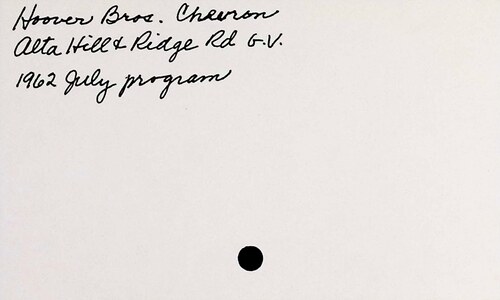 Hoover Bros. Chevron
Alta Hill & Ridge Rd G.V.
1962 July program